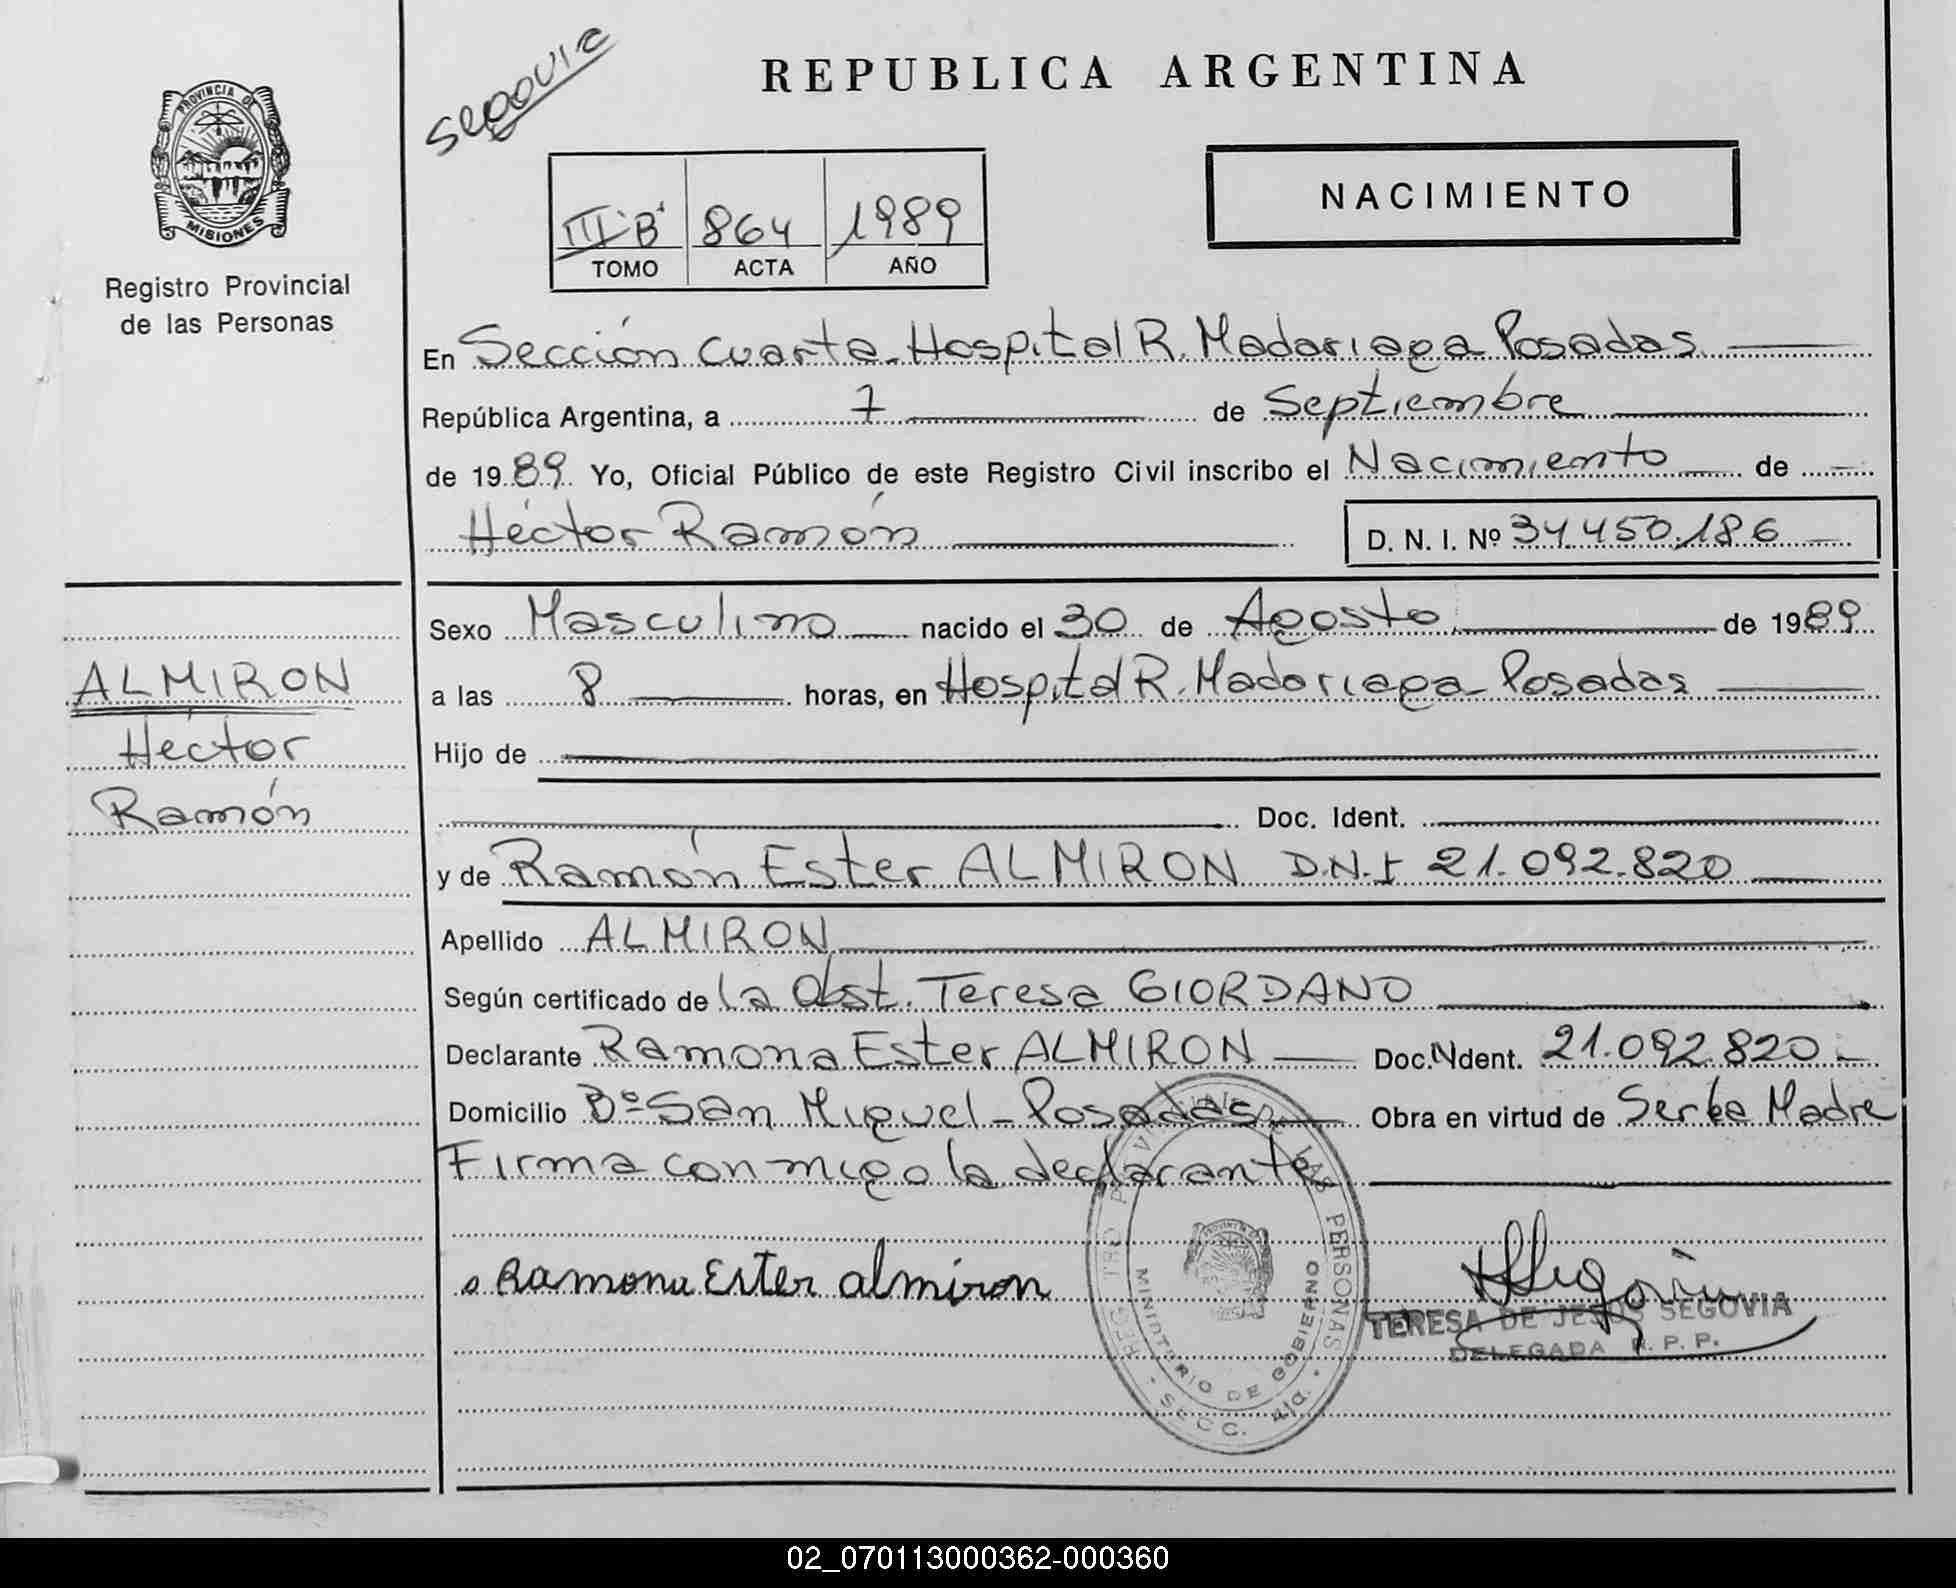 Segovia
REPUBLICA ARGENTINA
PROVINCIA DE
MISIONES
Registro Provincial
de las Personas
III "B" 864 1989
TOMO ACTA AÑO
NACIMIENTO
En Sección Cuarta Hospital R. Madariaga Posadas
República Argentina, a 7 de Septiembre
de 1989 Yo, Oficial Público de este Registro Civil inscribo el Nacimiento de
Héctor Ramón
D. N. I. Nº 34.450.186
Sexo Masculino nacido el 30 de Agosto de 1989
a las 8 horas, en Hospital R. Madariaga Posadas
Hijo de
Doc. Ident.
y de Ramón Ester ALMIRON D.N.I 21.092.820
Apellido ALMIRON
Según certificado de la Obst. Teresa GIORDANO
Declarante Ramona Ester ALMIRON Doc. Ident. 21.092.820
Domicilio Bº San Miguel - Posadas Obra en virtud de Ser la Madre
Firma conmigo la declarante
ALMIRON
Héctor
Ramón
Ramona Ester almiron
REGISTRO PROVINCIAL DE LAS PERSONAS
MINISTERIO DE GOBIERNO
SECC. 4ta.
TERESA DE JESUS SEGOVIA
DELEGADA R. P. P.
02_070113000362-000360